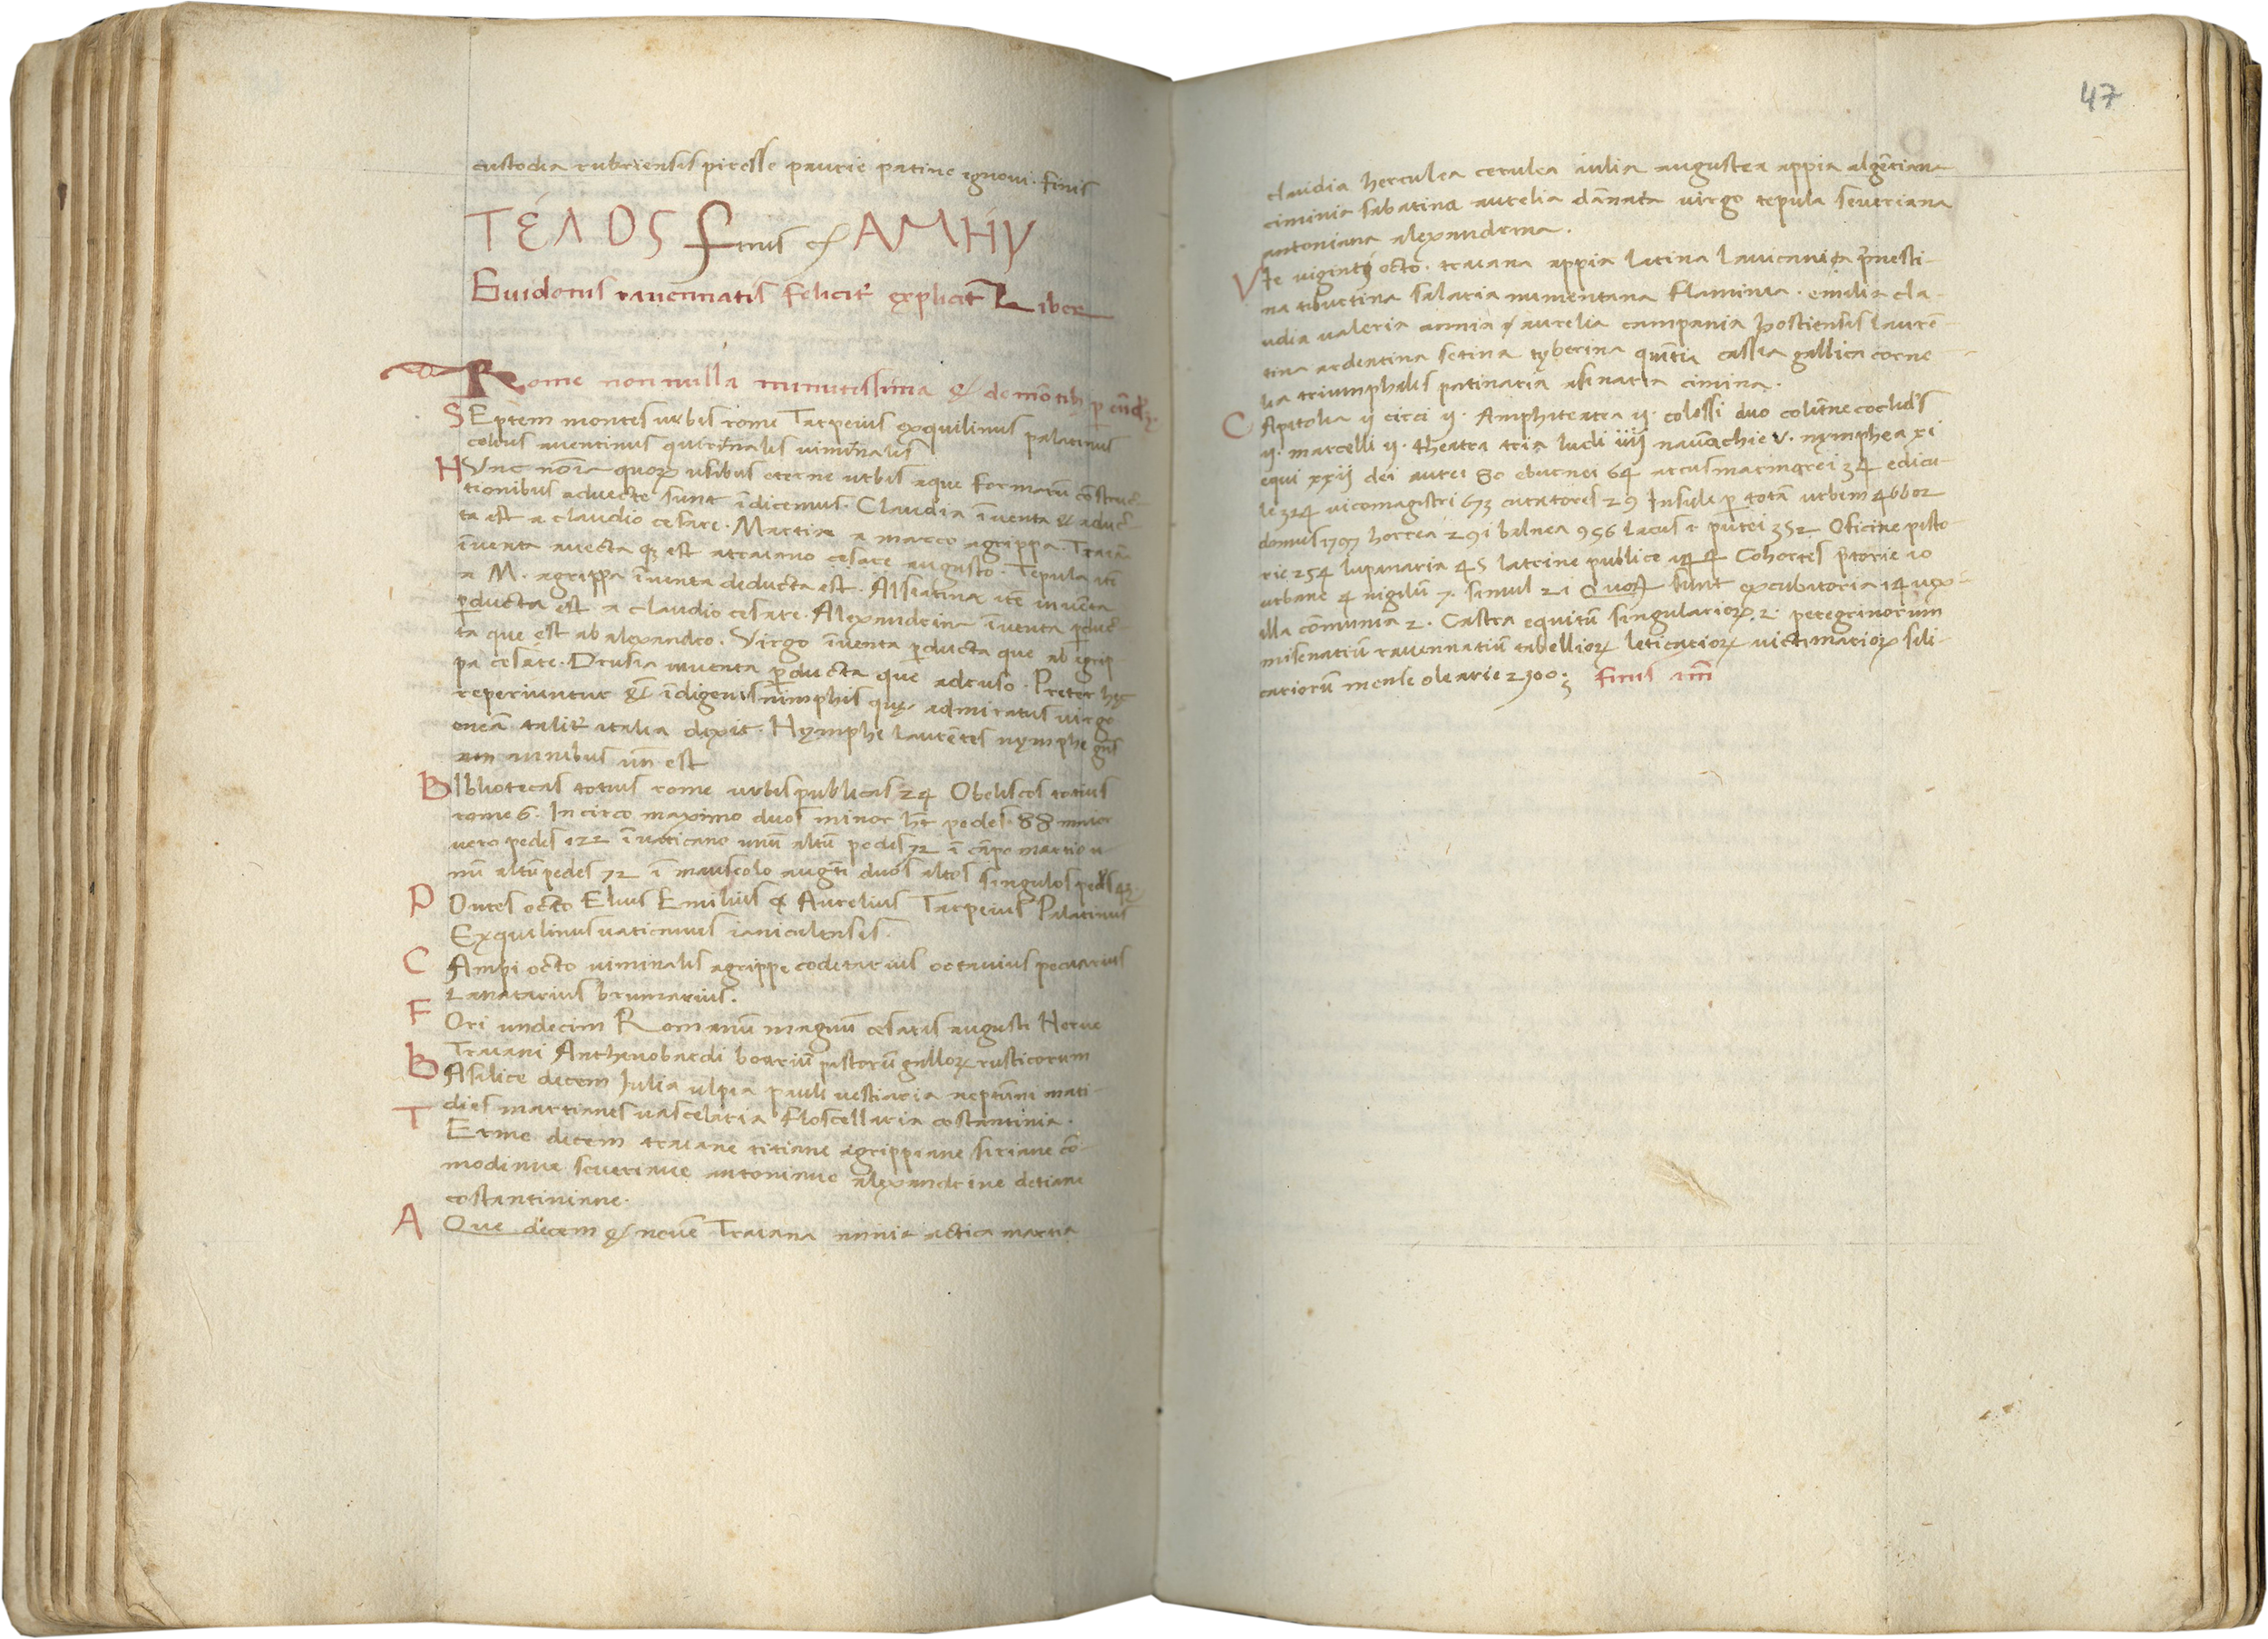 custodia rubriensis piresse paurie patine ignoui. finis
ΤέΛΟΣ finis & ΑΜΗν
Guidonis rauennatis feliciť explicit Liber
Rome non nulla minutissima & de mōtib; p
SEptem montes urbis rome Tarpeius exquilinus palatinus
celius auentinus quirinalis uiminalis
HUnc noīa quoꝝ usibus eterne urbis aque formarū constru
ctionibus aduecte sunt īdicemus. Claudia īuenta & aduc
ta est a claudio cesare. Martia a marco agrippa. Traia
īuenta auecta q; est atraiano cesare augusto. Tepula itē
a M. agrippa īuenta deducta est. Alsiatina itē inuēta
ꝑducta est a claudio cesare. Alexandrina īuenta ꝑduc
ta que est ab alexandro. Virgo īuenta ꝑducta que ab egrip
pa cesare. Drusia inuenta ꝑducta que adruso. Preter hec
reperiuntur īdigenis nimphis que admiratus virgo
taliť italia dixit. Nymphe laurētes nymphe
amnibus est
BIbliotecas totius rome urbis publicas 24 Obeliscos totius
rome 6. In circo maximo duos minor hт pedes. 88 maior
uero pedes 122 ī uaticano unū altū pedes 72 ī cāpo martio u
nū altū pedes 72 ī mauseolo augti duos altos singulos pedes 42.
POntes octo Elius Emilius & Aurelius Tarpeius Palatinus
Exquilinus uaticanus ianiculensis.
CAmpi octo uiminalis agrippe coditarius octauius pecuarius
Lanatarius brumarius.
FOri undecim Romanū magnū cesaris augusti Nerue
Traiani Anthenobardi boariū pistorū galloꝝ rusticorum
BAsilice decem Iulia ulpia pauli uestiaria neptūni mati
dies martianes uascelaria floscellaria costantinia.
TErme decem traiane titiane agrippiane siriane cō
modiane seueriane antoniane alexandrine detiane
costantiniane.
AQue decem & nouē Traiana annia actica martia
47
claudia herculea cerulea iulia augustea appia algētiana
ciminia sabatina aurelia dānata virgo tepula seueriana
antoniana alexandrina.
VIe viginti octo. traiana appia latina lauicania p̄nesti-
na tiburtina salaria numentana flaminia. emilia cla-
udia valeria annia & aurelia campania hostiensis laurē-
tina ardeatina setina tyberina quītia cassia gallica corne
lia triumphalis patinaria asinaria cimina.
CApitolia ij circi ij. Amphiteatra ij. colossi duo colūne coclides
ij. marcelli ij. theatra tria ludi iiij naumachie v. nymphea xi
equi xxij dei aurei 80 eburnei 64 arcus marmorei 34 edicu-
le 324 uicomagistri 673 curatores 29 Insule ꝑ totā urbem 46602
domus 1797 horrea 291 balnea 956 lacus & putei 352 Oficine pisto
rie 254 lupanaria 45 latrine publice 144 Cohortes p̄torie 10
urbane 4 uigilū 7. simul 21 Quoꝝ sunt excubitoria 14 uex-
illa cōmunia 2. Castra equitū singularioꝝ. 2. peregrinorum
misenatiū rauennatiū tabellioꝝ leticarioꝝ uictimarioꝝ sili-
cariorū mense olearie 2300; finis am̄